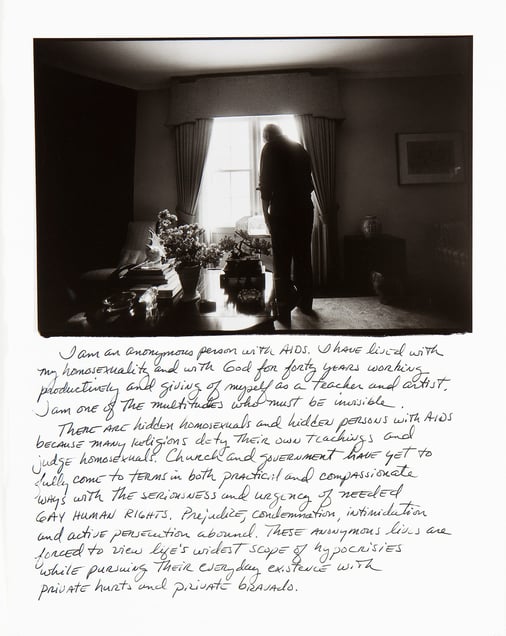 I am an anonymous person with AIDS. I have lived with
my homosexuality and with God for forty years working
productively and giving of myself as a teacher and artist.
I am one of the multitudes who must be invisible.
There are hidden homosexuals and hidden persons with AIDS
because many religions defy their own teachings and
judge homosexuals. Church and government have yet to
fully come to terms in both practical and compassionate
ways with the seriousness and urgency of needed
GAY HUMAN RIGHTS. Prejudice, condemnation, intimidation
and active persecution abound. These anonymous lives are
forced to view life's widest scope of hypocrisies
while pursuing their everyday existence with
private hurts and private bravado.